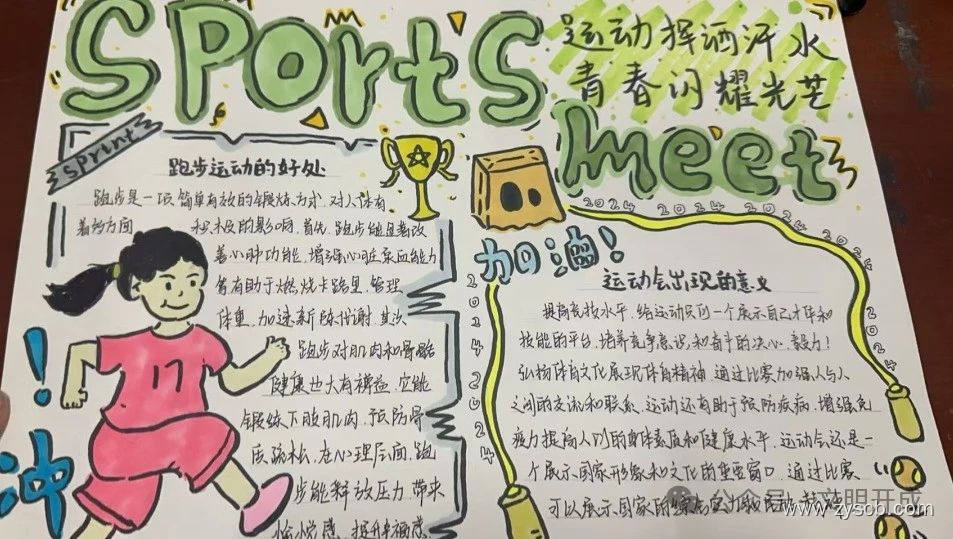 Sports
meet
运动挥洒汗水
青春闪耀光芒
Sprint
跑步运动的好处
跑步是一项简单有效的锻炼方式,对人体有
着多方面 积极的影响,首先,跑步能显著改
善心肺功能,增强心脏泵血能力
有助于燃烧卡路里,管理
体重,加速新陈代谢,其次
跑步对肌肉和骨骼
健康也大有裨益,它能
锻练下肢肌肉,预防骨
质疏松,在心理层面,跑
步能释放压力,带来
愉悦感,提升幸福感
17
!
冲
加油!
2024 2024 2024 2024
2024 2024
运动会出现的意义
提高竞技水平,给运动员们一个展示自己才华和
技能的平台,培养竞争意识和奋斗的决心、毅力!
弘扬体育文化展现体育精神,通过比赛加强人与人
之间的交流和联系,运动还有助于预防疾病,增强免
疫力提高人们的身体素质和健康水平,运动会还是一
个展示国家形象和文化的重要窗口,通过比赛
可以展示国家的
www.zyscbl.com